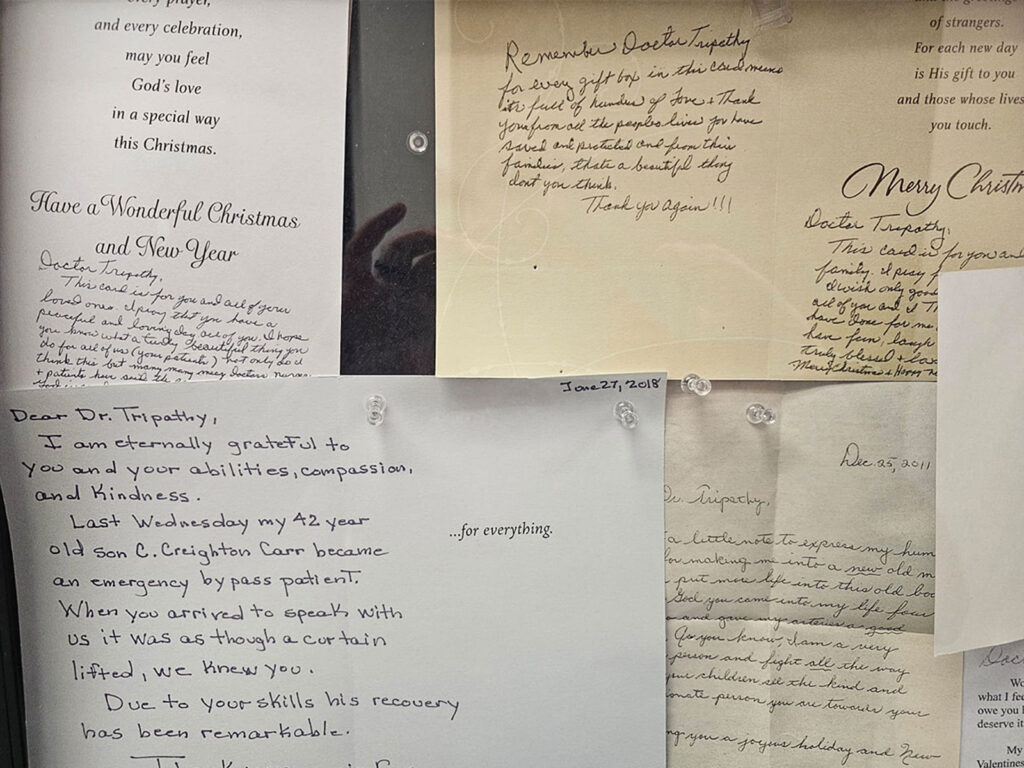 every prayer,
and every celebration,
may you feel
God's love
in a special way
this Christmas.
Have a Wonderful Christmas
and New Year
Doctor Tripathy,
This card is for you and all of your
loved ones. I pray that you have a
peaceful and loving day all of you. I hope
you know what a truly beautiful thing you
do for all of us (your patients) not only do I
think this but many many many doctors nurses
+ patients have said the
Remember Doctor Tripathy
for every gift box in this card means
its full of hundres of Love + Thank
Yous from all the peoples lives you have
saved and protected and from their
families, thats a beautiful thing
dont you think.
Thank you Again!!!
of strangers.
For each new day
is His gift to you
and those whose lives
you touch.
Merry Christm
Doctor Tripathy,
This card is for you and
family. I pray
I wish only good
all of you and I Th
have done for me.
have fun, laugh
truly blessed + Lov
Merry Christmas + Happy
June 27, 2018
Dear Dr. Tripathy,
I am eternally grateful to
you and your abilities, compassion,
and Kindness.
Last Wednesday my 42 year
old son C. Creighton Carr became
an emergency by pass patient.
When you arrived to speak with
us it was as though a curtain
lifted, we knew you.
Due to your skills his recovery
has been remarkable.
...for everything.
Dec. 25, 2011
Dr. Tripathy,
a little note to express my hum
for making me into a new old m
put more life into this old bod
God you came into my life four
and gave my arteries a good
As you know I am a very
person and fight all the way
your children see the kind and
onate person you are towards your
ng you a joyous holiday and New
Doc
Wo
what I fee
owe you
deserve it
My
Valentines